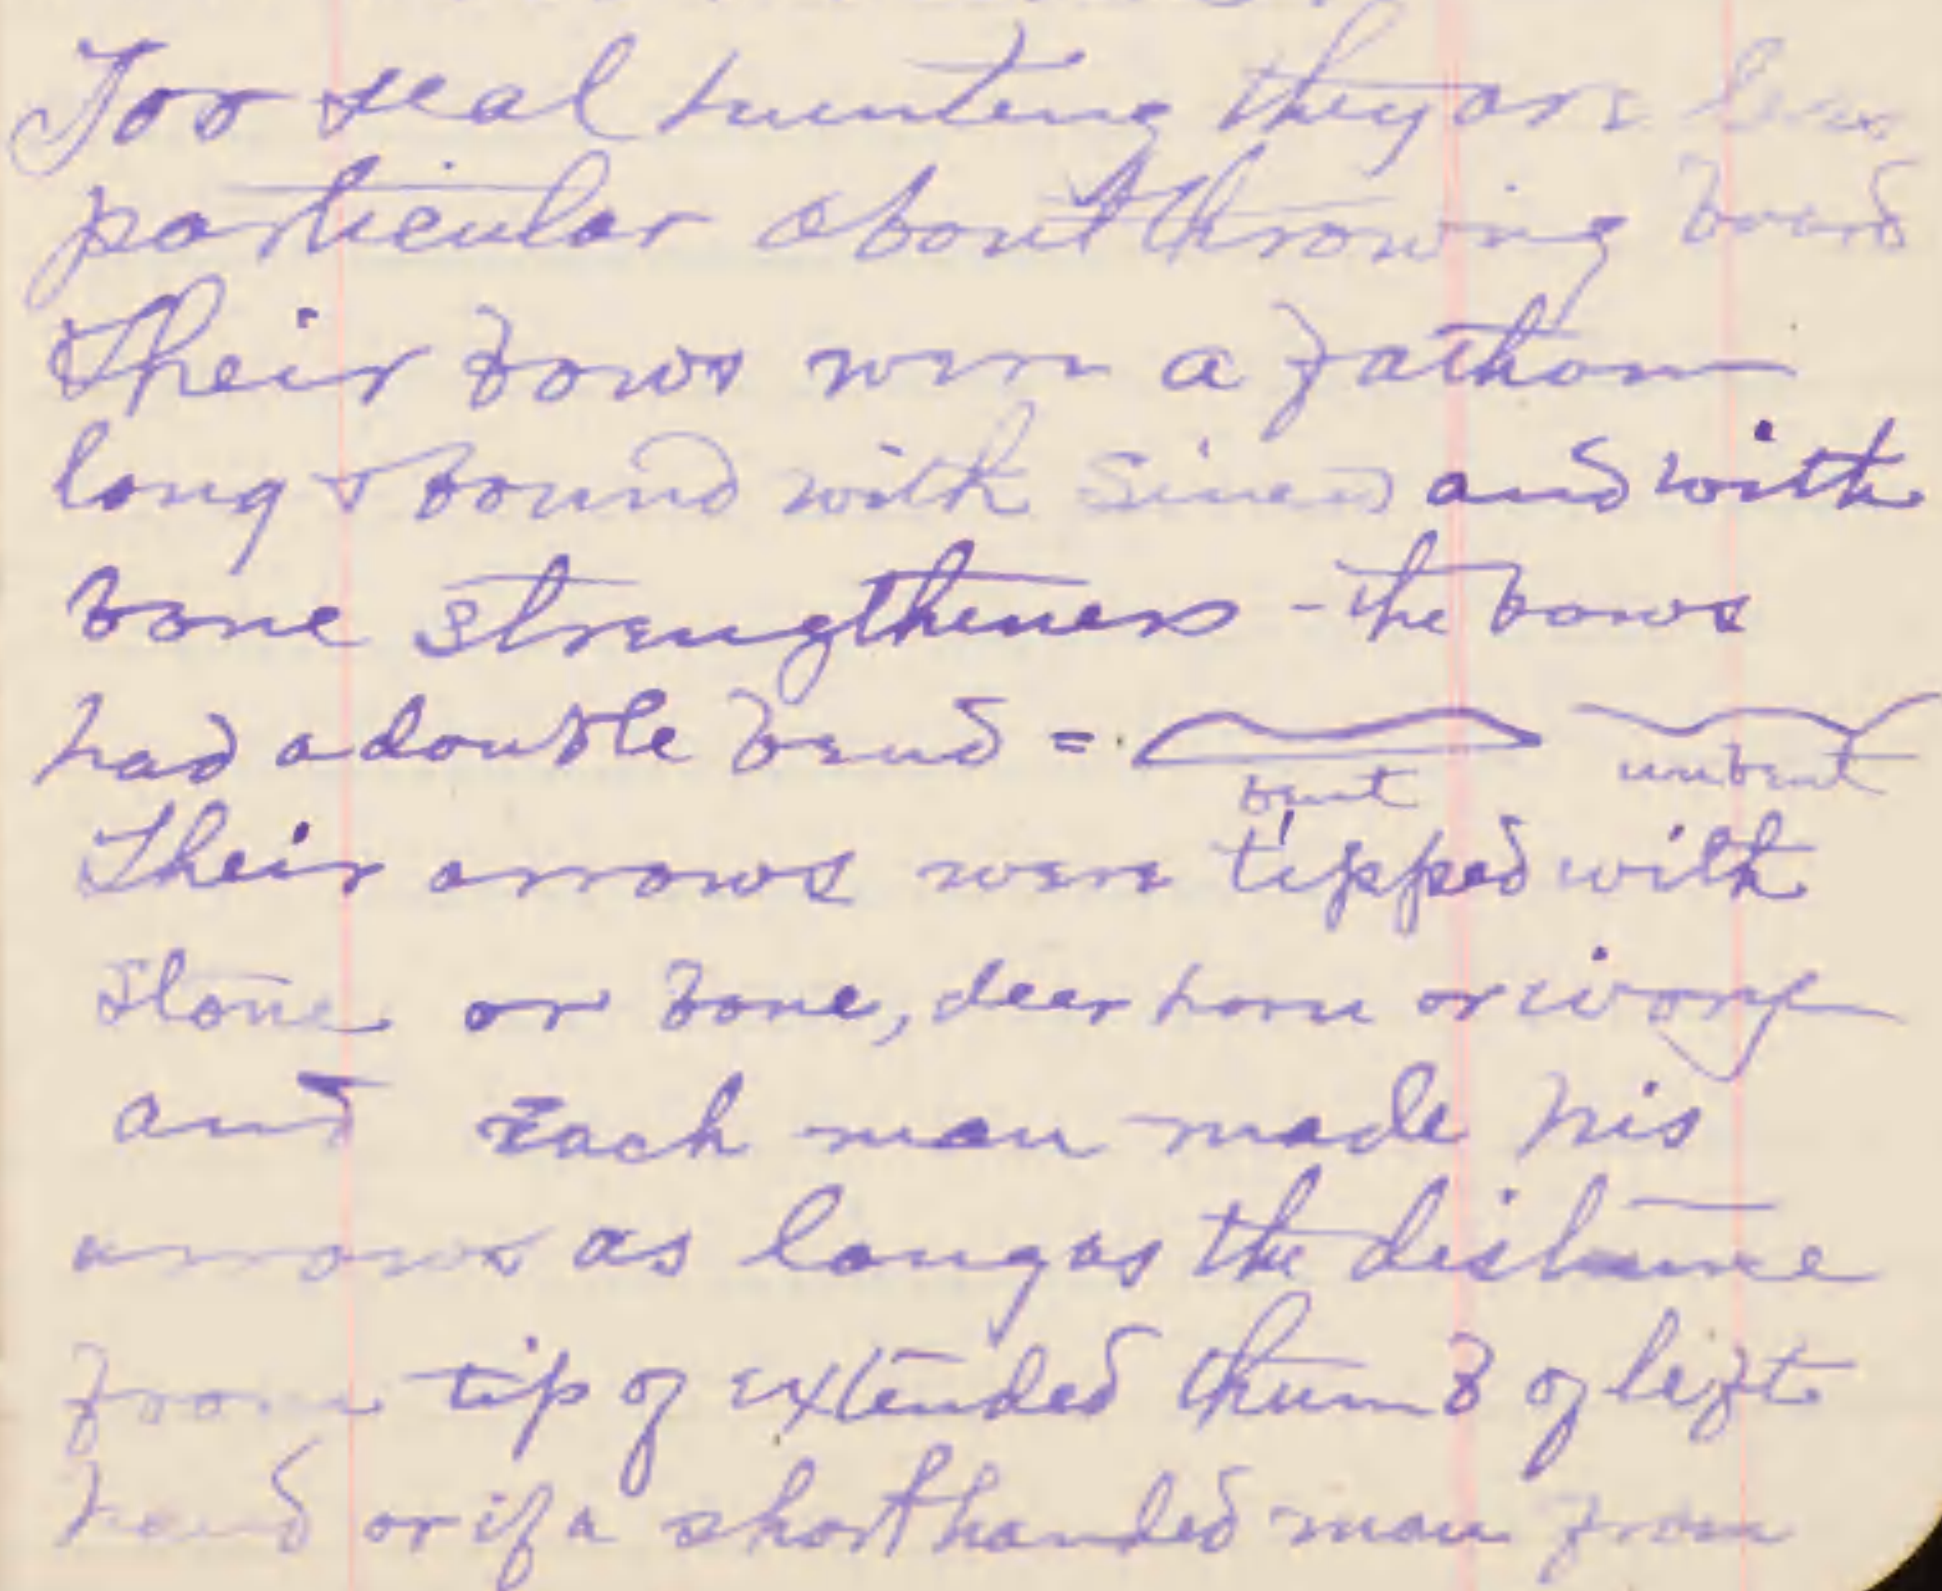 For seal hunting they are less
particular about throwing board
Their bows were a fathom
long & bound with sinew and with
bone strengtheners - the bows
had a double bend =
bent unbent
Their arrows were tipped with
stone or bone, deer horn or ivory
and each man made his
arrows as long as the distance
from tip of extended thumb of left
hand or if a short handed man from